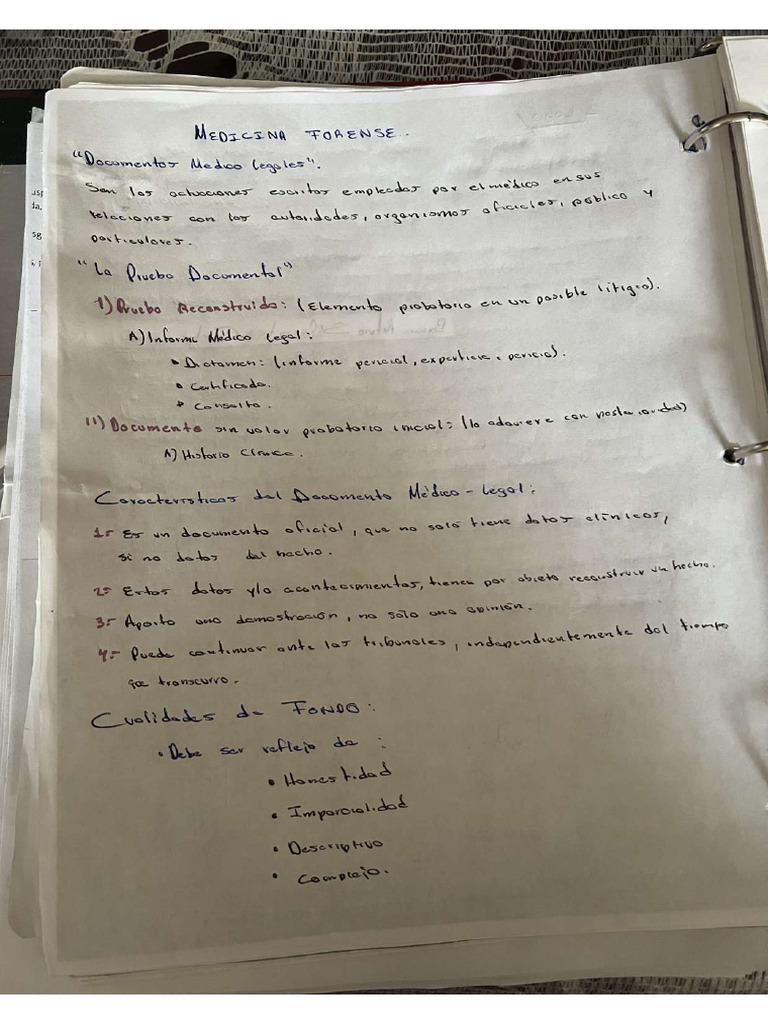 MEDICINA FORENSE..
"Documentos Medico Legales".
Son las actuaciones escritas empleadas por el médico en sus
relaciones con las autoridades, organismos oficiales, público y
particulares.
"La Prueba Documental"
I) Prueba Reconstruida: (Elemento probatorio en un posible litigio).
A) Informe Médico Legal:
• Dictamen: (informe pericial, experticia, pericia).
• Certificado.
• Consulta.
II) Documento sin valor probatorio inicial: (lo adquiere con
A) Historia Clínica.
Características del Documento Médico-Legal:
1:- Es un documento oficial, que no solo tiene datos clínicos,
si no datos del hecho.
2:- Estos datos y/o acontecimientos, tienen por objeto reconstruir un hecho.
3:- Aporta una demostración, no sólo una opinión.
4:- Puede continuar ante los tribunales, independientemente del tiempo
que transcurra.
Cualidades de FONDO:
• Debe ser reflejo de :
• Honestidad
• Imparcialidad
• Descriptivo
• Complejo.